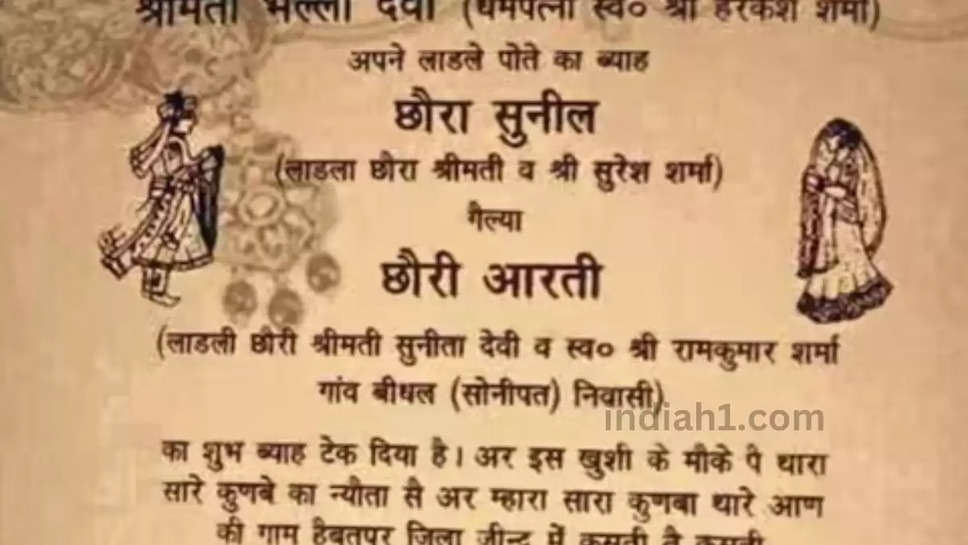 श्रीमती भल्लो देवी (धर्मपत्नी स्व० श्री हरकेश शर्मा)
अपने लाडले पोते का ब्याह
छौरा सुनील
(लाडला छौरा श्रीमती व श्री सुरेश शर्मा)
गैल्या
छौरी आरती
(लाडली छौरी श्रीमती सुनीता देवी व स्व० श्री रामकुमार शर्मा
गांव बीधल (सोनीपत) निवासी)
indiah1.com
का शुभ ब्याह टेक दिया है। अर इस खुशी के मौके पै थारा
सारे कुणबे का न्यौता सै अर म्हारा सारा कुणबा थारे आण
की गाम हैबतपुर जिला जीन्द में कसुती तै कसुती